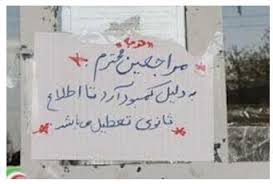 مراجعین محترم :
به دلیل کمبود آرد تا اطلاع
ثانوی تعطیل می باشد